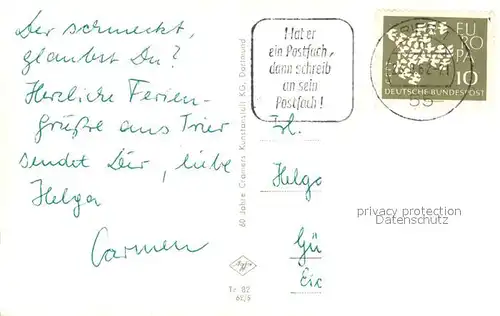 Der schmeckt,
glaubst Du?
Herzliche Ferien-
grüße aus Trier
sendet Dir, liebe
Helga
Carmen
60 Jahre Cramers Kunstanstalt KG, Dortmund
Hat er
ein Postfach,
dann schreib
an sein
Postfach!
EU
RO
PA
10
DEUTSCHE BUNDESPOST
Frl.
Helga
privacy protection
Datenschutz
Gü
Eic
Tr 82